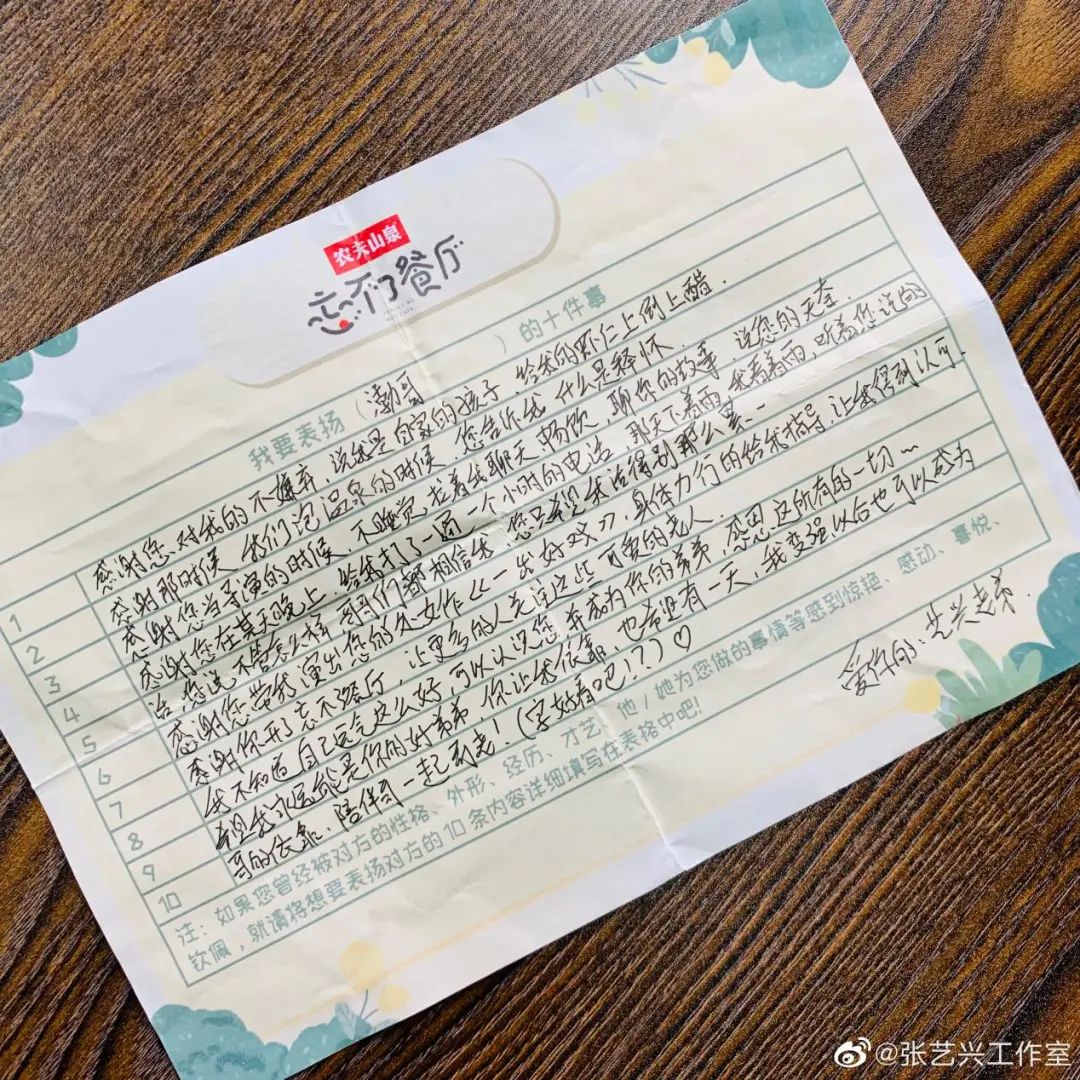 农夫山泉
忘不了餐厅
我要表扬（渤哥）的十件事
1 感谢您对我的不嫌弃，说我是自家的孩子，给我的虾仁上倒上醋.
2 感谢那时候 我们泡温泉的时候 您告诉我 什么是释怀.
3 感谢您当导演的时候，不睡觉 老看我聊天 畅饮，聊你的故事，说您的天分.
4 感谢您在某天晚上，给我打了一通一个小时的电话，那天下着雨，我看着雨，听着您说的
5 话，您说，不管怎么样 哥哥们都相信我 您只希望我活得别那么累..
6 感谢您带我演出您的处女作《一出好戏》，身体力行的给我指导，让我得到认可.
7 感谢你开了忘不了餐厅，让更多的人关注这些 可爱的老人.
8 我不知道自己运气这么好，可以认识您，并成为你的弟弟，感恩这所有的一切～
9 希望我永远能是你的好弟弟，你让我依靠，也希望有一天，我变强以后也可以成为
10 哥的依靠.陪伴哥一起到老！(字好看吧！？)♡
爱你的：艺兴兄弟.
注：如果您曾经被对方的性格、外形、经历、才艺、他/她为您做的事情等感到惊艳、感动、喜悦、
钦佩，就请将想要表扬对方的10条内容详细填写在表格中吧!
@张艺兴工作室